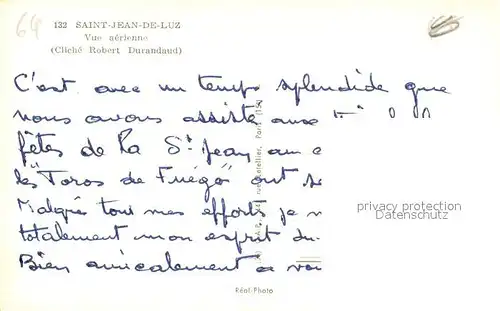 64
132 SAINT-JEAN-DE-LUZ
Vue aérienne
(Cliché Robert Durandaud)
C'est avec un temps splendide que
nous avons assisté aux
fêtes de la St Jean
les "Toros de Fuégo" ont
Malgrés tous mes efforts je n
totalement mon esprit du
Bien amicalement à
privacy protection
Datenschutz
Réal-Photo